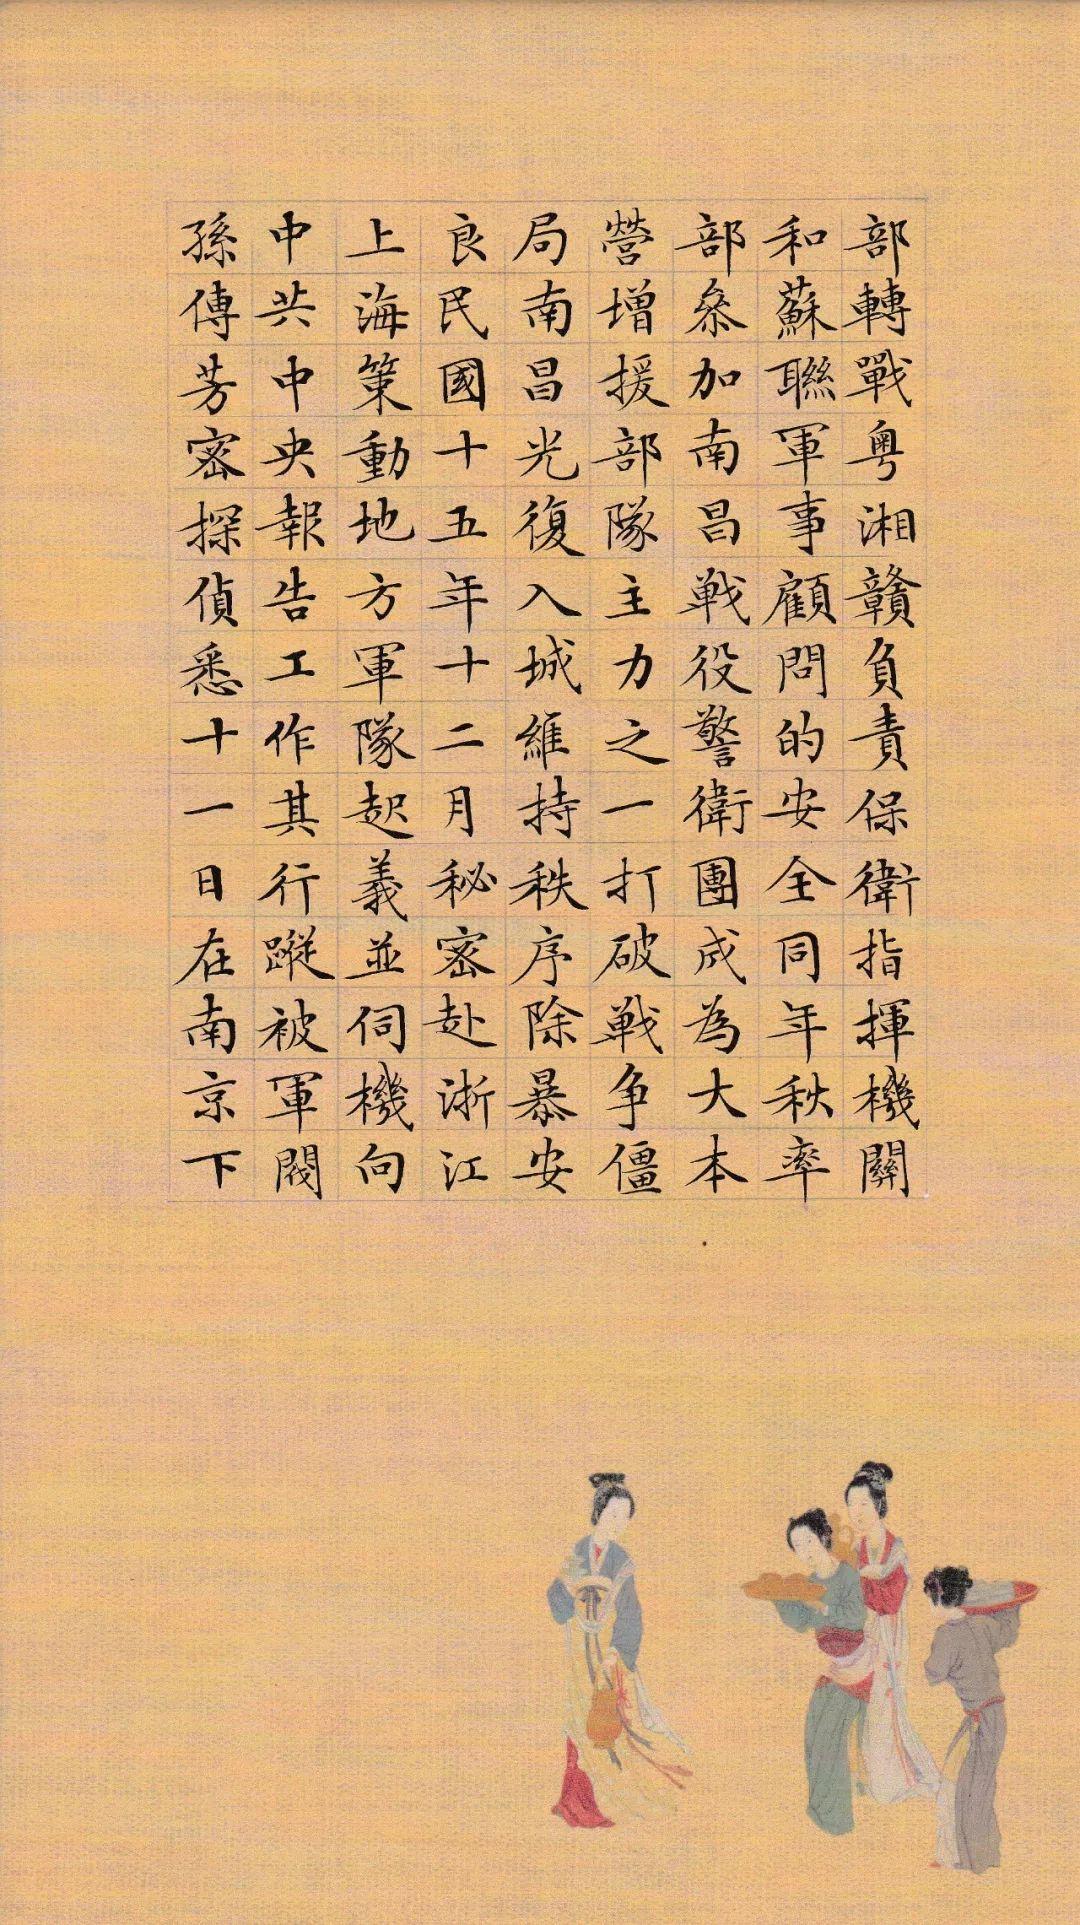 部轉戰粤湘贛負責保衛指揮機關
和蘇聯軍事顧問的安全同年秋率
部叅加南昌戦役警衛團成為大本
營增援部隊主力之一打破戦争僵
局南昌光復入城維持秩序除暴安
良民國十五年十二月秘密赴浙江
上海策動地方軍隊起義並伺機向
中共中央報告工作其行蹤被軍閥
孫傳芳密探偵悉十一日在南京下